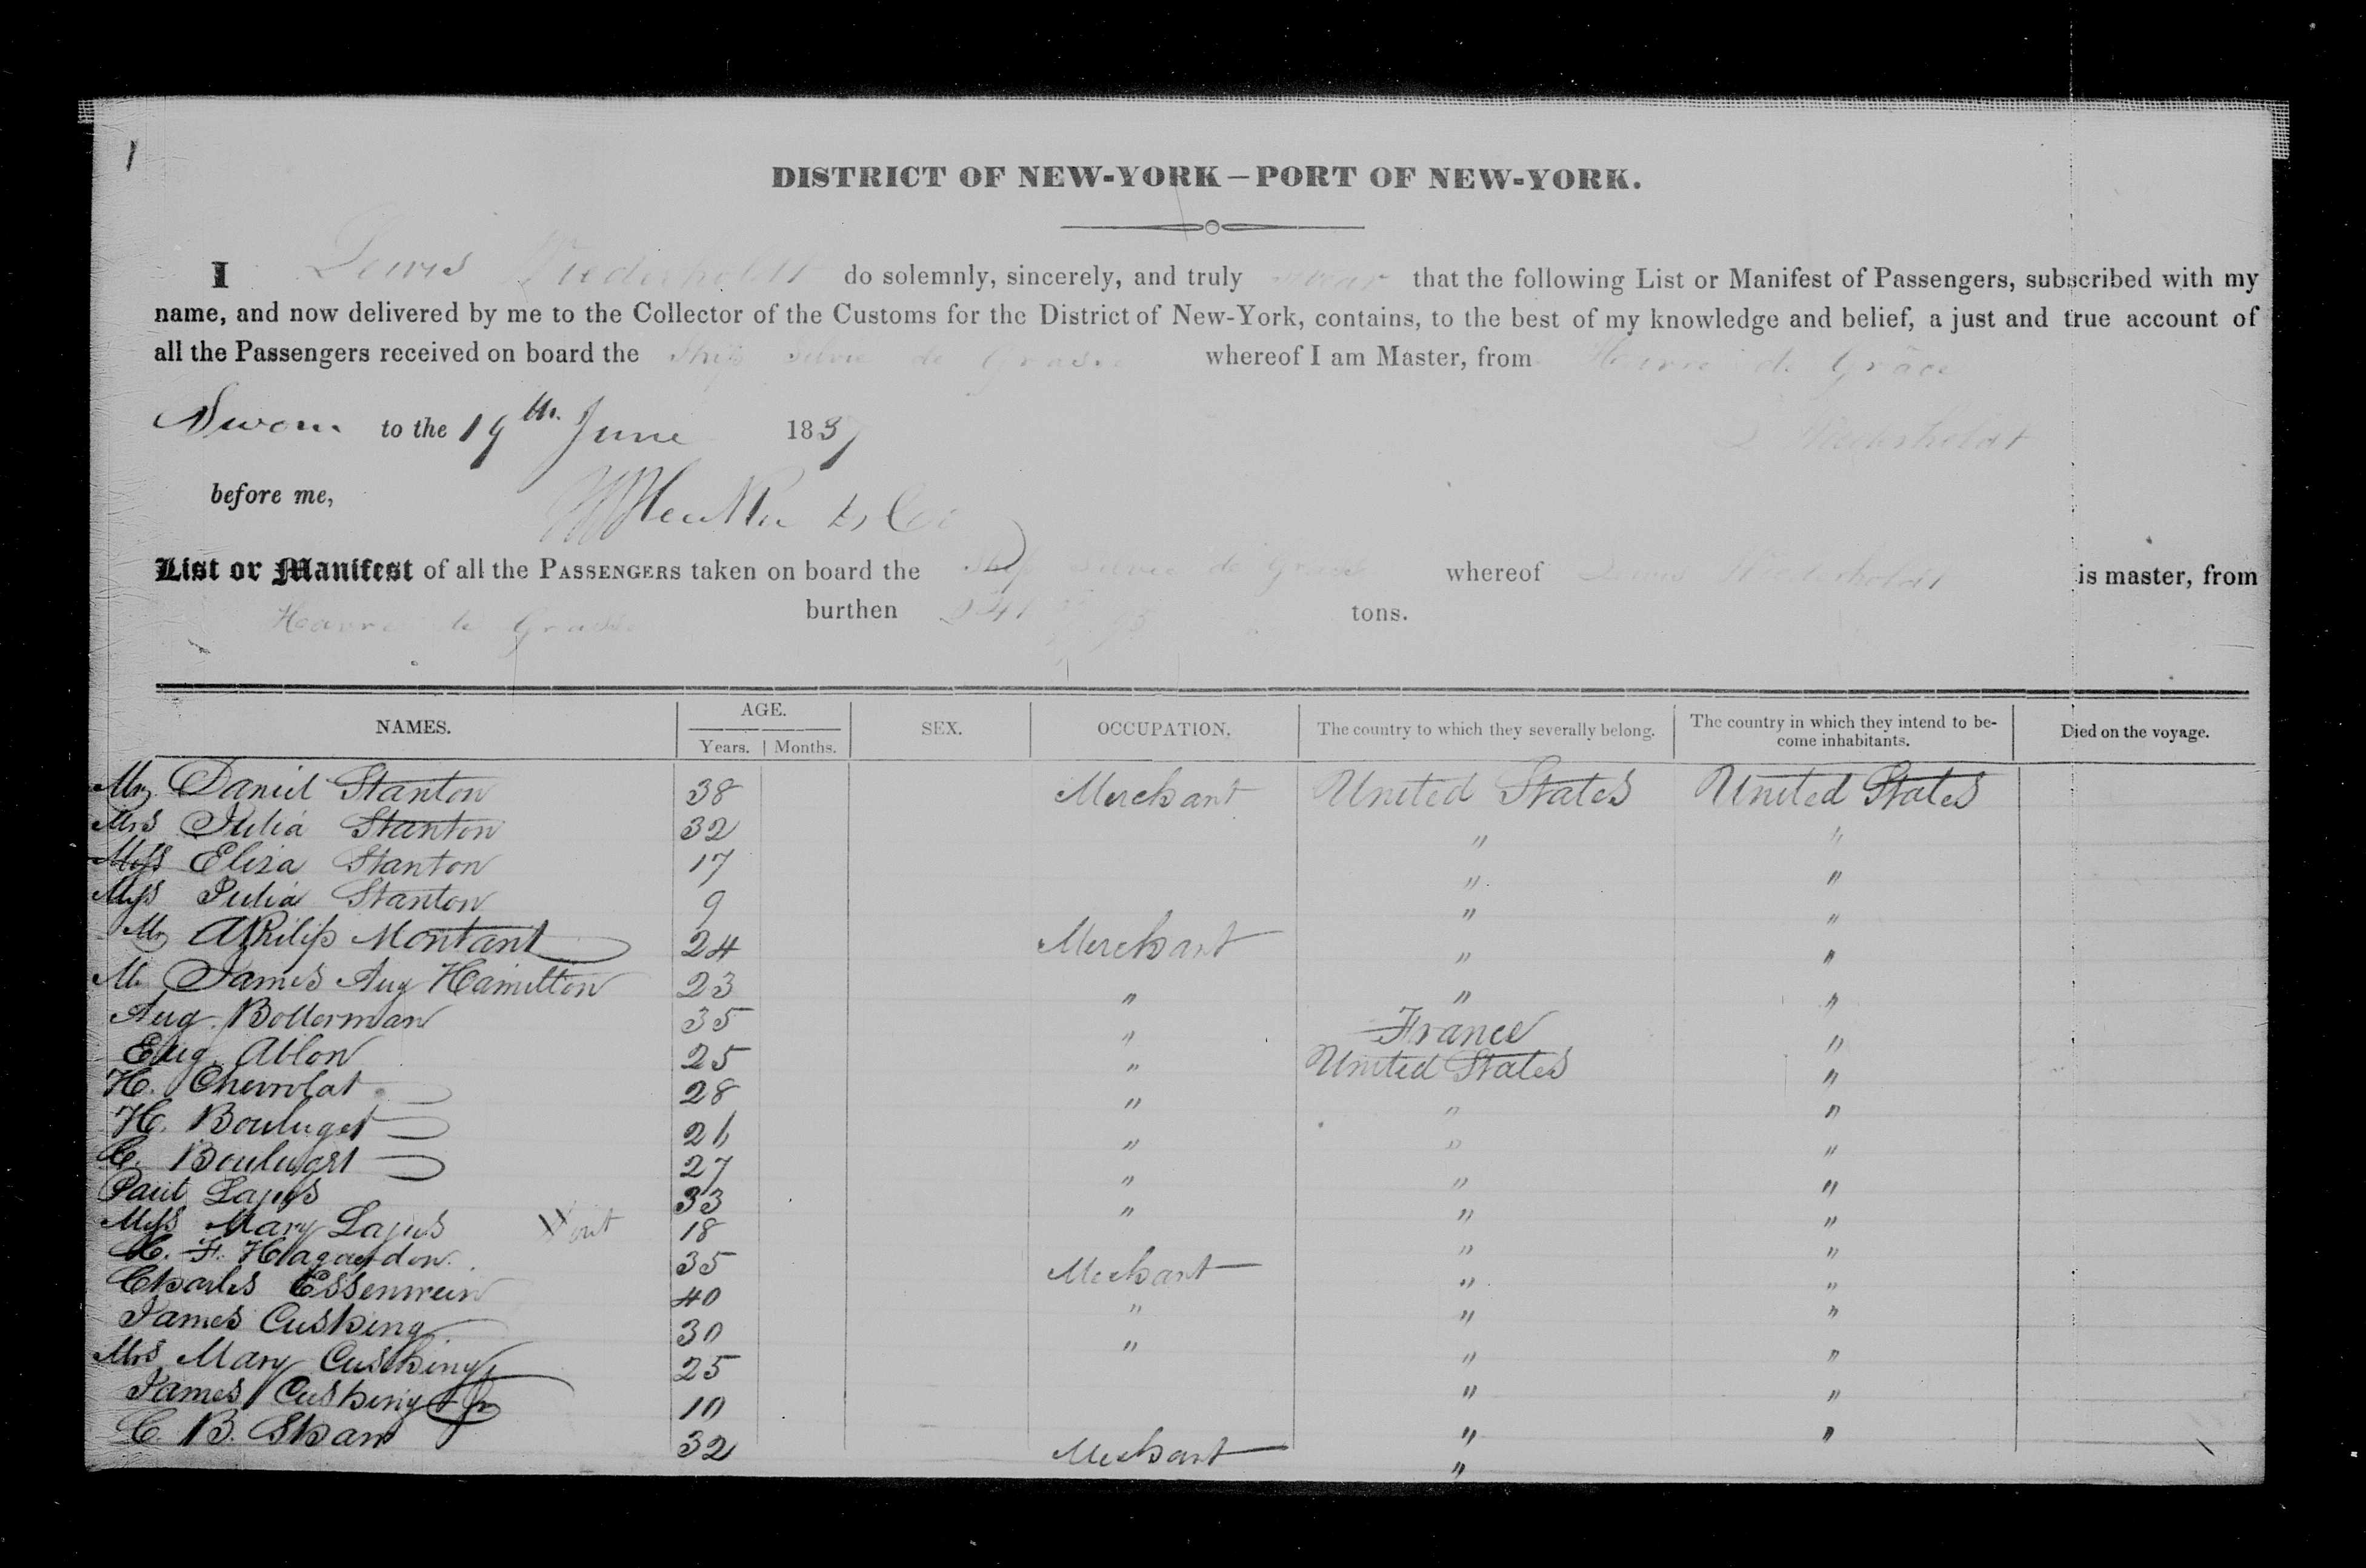 1
DISTRICT OF NEW-YORK—PORT OF NEW-YORK.
I Lewis Wiederholdt do solemnly, sincerely, and truly swear that the following List or Manifest of Passengers, subscribed with my
name, and now delivered by me to the Collector of the Customs for the District of New-York, contains, to the best of my knowledge and belief, a just and true account of
all the Passengers received on board the Ship Silvie de Grasse whereof I am Master, from Havre de Grace
Sworn to the 19th June 1837
L Wiederholdt
before me,
List or Manifest of all the PASSENGERS taken on board the Ship Silvie de Grasse whereof Lewis Wiederholdt is master, from
Havre de Grasse burthen tons.
NAMES. AGE. Years. Months. SEX. OCCUPATION. The country to which they severally belong. The country in which they intend to become inhabitants. Died on the voyage.
Mr Daniel Stanton 38 Merchant United States United States
Mrs Julia Stanton 32 " "
Miss Eliza Stanton 17 " "
Miss Julia Stanton 9 " "
Mr A Philip Montant 24 Merchant " "
Mr James Aug Hamilton 23 " " "
Aug. Bollerman 35 " France "
Eug. Ablon 25 " United States "
H. Chevrolat 28 " " "
H. Bouluget 26 " " "
C. Bouluget 27 " " "
Paul Lajus 33 " " "
Miss Mary Lajus 18 " "
35 Merchant " "
Charles Essenwein 40 " " "
James Cushing 30 " " "
Mrs Mary Cushing 25 " "
James Cushing Jr 10 " "
C. B. Shaw 32 Merchant "